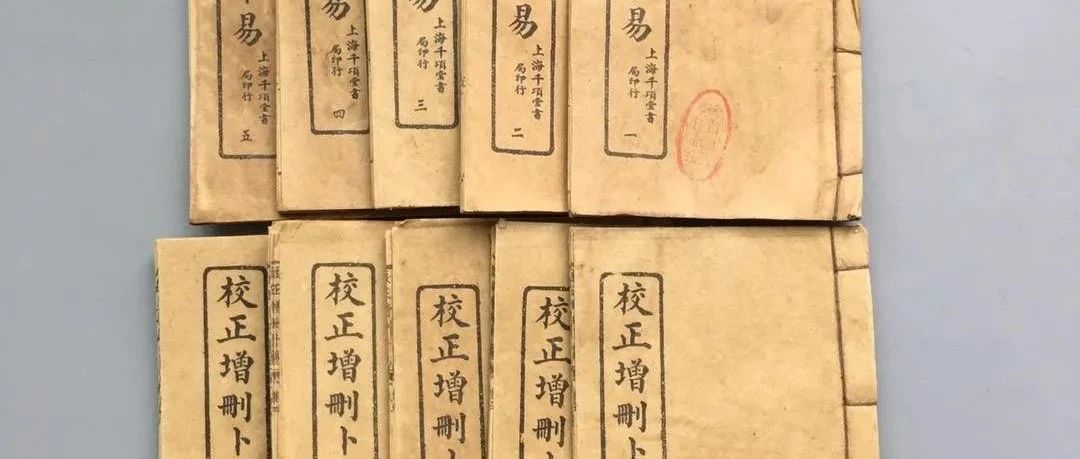 易
上海千頃堂書
局印行
一
易
上海千頃堂書
局印行
二
易
上海千頃堂書
局印行
三
易
上海千頃堂書
局印行
四
易
上海千頃堂書
局印行
五
校正增刪卜
校正增刪卜
校正增刪卜
校正增刪卜
校正增刪卜